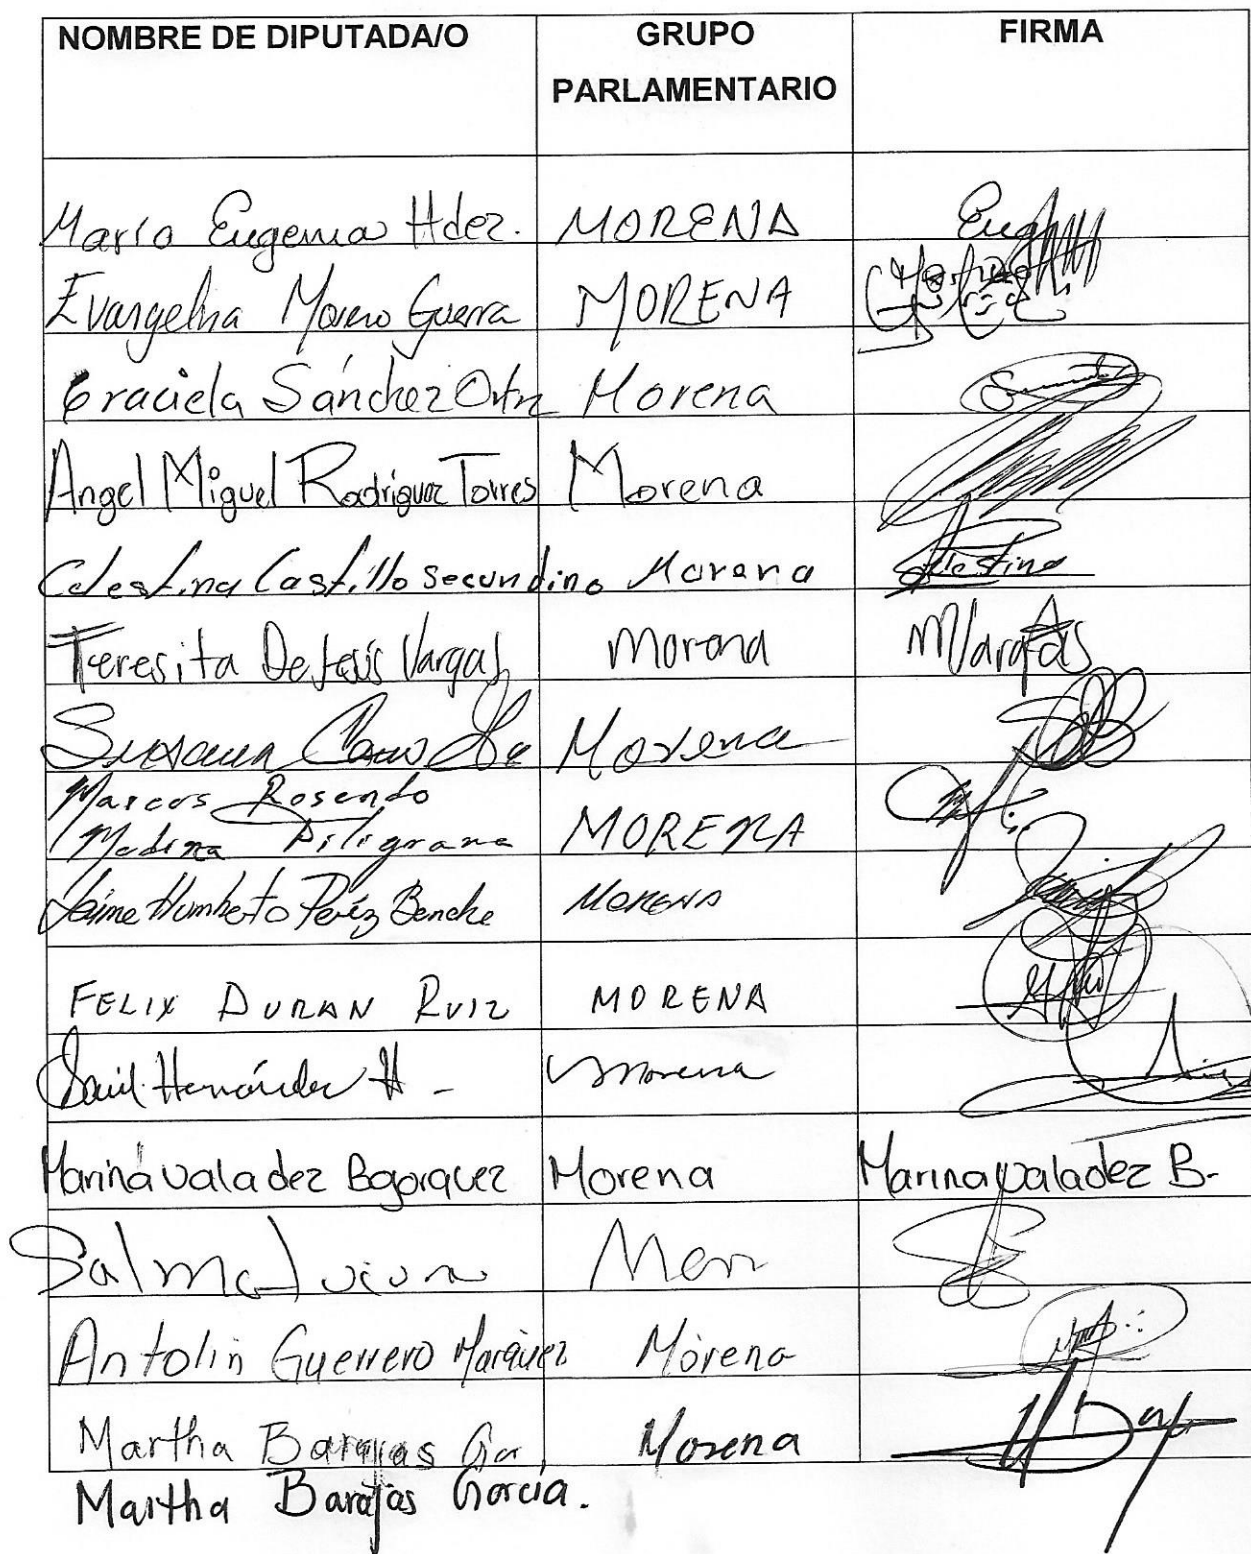 NOMBRE DE DIPUTADA/O GRUPO PARLAMENTARIO FIRMA
María Eugenia Hdez. MORENA
Evangelina Moreno Guerra MORENA
Graciela Sánchez Ortiz Morena
Angel Miguel Rodríguez Torres Morena
Celestina Castillo Secundino Morena Celestina
Teresita De Jesús Vargas Morena MVargas
Susana Cano Morena
Marcos Rosendo
Medina Filigrana MORENA
Jaime Humberto Pérez Morena
FELIX DURAN RUIZ MORENA
Saúl Hernández H - Morena
Marina Valadez Bojorquez Morena Marina valadez B-
Salma Luevano Mor
Antolin Guerrero Marquez Morena
Martha Barajas Gar Morena
Martha Barajas García.